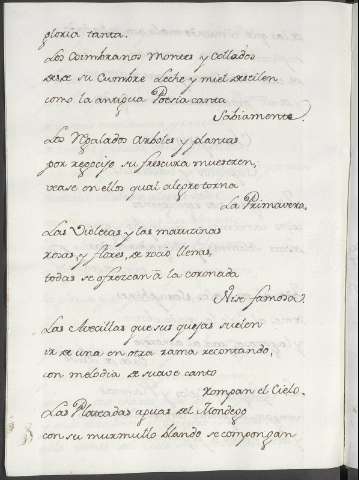 gloria tanta.
Los Coimbranos Montes y Collados
desde su Cumbre Leche y miel destilen
como la antigua Poesia canta
Sabiamente.
Los Opalados arboles y plantas
por regocijo su frescura muestren,
vease en ellos qual alegre torna
La Primavera.
Las Violetas y las matutinas
rosas, y flores, de rocio llenas,
todas se ofrezcan â la coronada
Arse famosa.
Las Avecillas que sus quejas suelen
ir de una en otra rama recontando,
con melodia de suave canto
rompan el Cielo.
Las Plateadas aguas del Mondego
con su murmullo blando se compongan